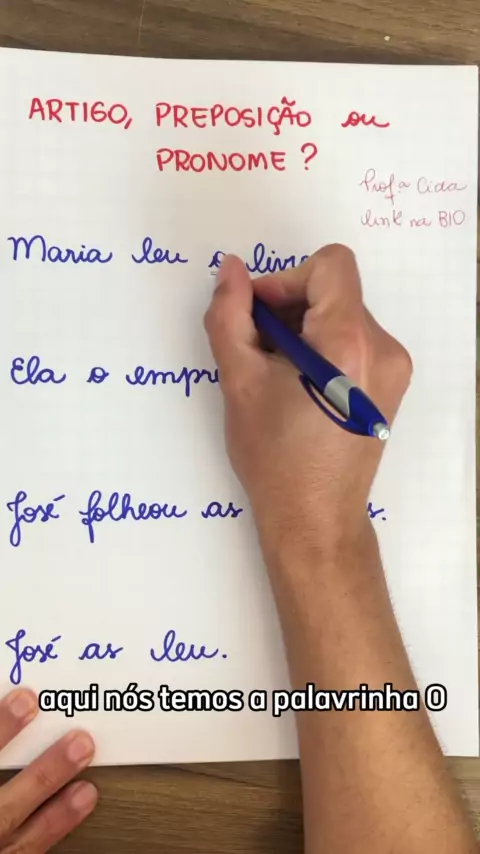 ARTIGO, PREPOSIÇÃO ou
PRONOME ?
Prof.ª Cida
link na BIO
Maria leu o
Ela o
José folheou as
José as leu.
aqui nós temos a palavrinha O